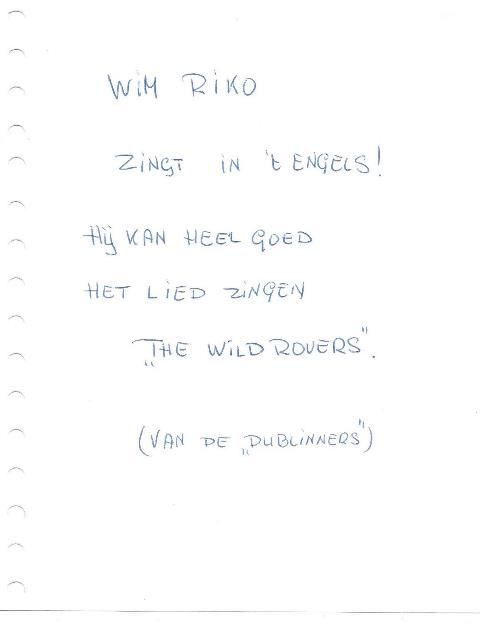 WIM RIKO
ZINGT IN 't ENGELS!
Hij KAN HEEL GOED
HET LIED ZINGEN
„THE WILD ROVERS".
(VAN DE „DUBLINNERS")